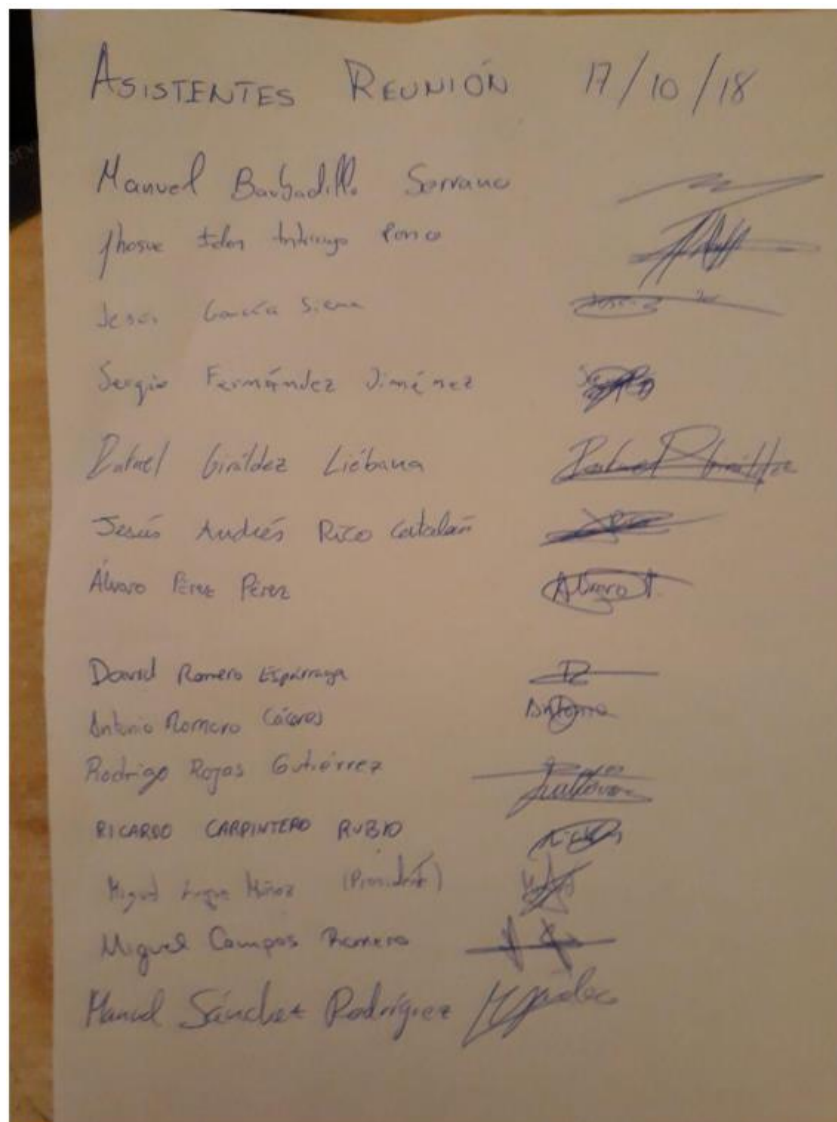 ASISTENTES REUNIÓN 17/10/18
Manuel Barbadillo Serrano
Jhosue
Jesús García
Sergio Fernández Jiménez
Rafael Giráldez Liébana Rafael Giráldez
Jesús Andrés Rico Catalán
Álvaro Pérez Pérez Álvaro P.
David Romero Espárraga
Antonio Romero Cáceres Antonio
Rodrigo Rojas Gutiérrez
RICARDO CARPINTERO RUBIO
Miguel (Presidente)
Miguel Campos Romero
Manuel Sánchez Rodríguez